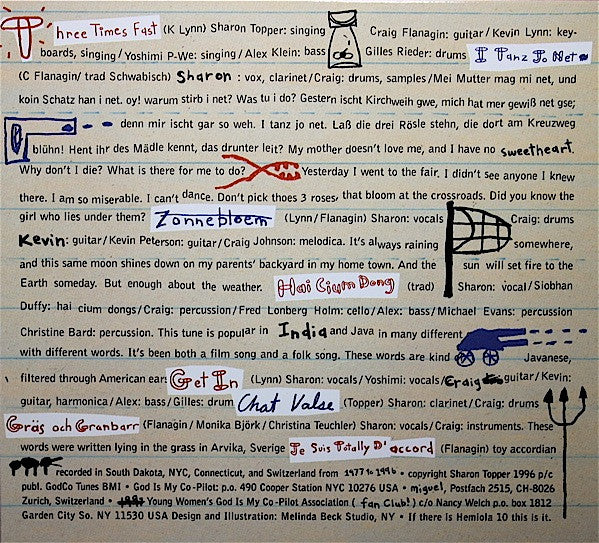 Three Times Fast (K Lynn) Sharon Topper: singing Craig Flanagin: guitar/Kevin Lynn: key-
boards, singing/Yoshimi P-We: singing/Alex Klein: bass Gilles Rieder: drums I Tanz Jo Net
(C Flanagin/ trad Schwabisch) Sharon : vox, clarinet/Craig: drums, samples/Mei Mutter mag mi net, und
koin Schatz han i net. oy! warum stirb i net? Was tu i do? Gestern ischt Kirchweih gwe, mich hat mer gewiß net gse;
denn mir ischt gar so weh. I tanz jo net. Laß die drei Rösle stehn, die dort am Kreuzweg
blühn! Hent ihr des Mädle kennt, das drunter leit? My mother doesn't love me, and I have no sweetheart.
Why don't I die? What is there for me to do? Yesterday I went to the fair. I didn't see anyone I knew
there. I am so miserable. I can't dance. Don't pick thoes 3 roses, that bloom at the crossroads. Did you know the
girl who lies under them? Zonnebloem (Lynn/Flanagin) Sharon: vocals Craig: drums
Kevin: guitar/Kevin Peterson: guitar/Craig Johnson: melodica. It's always raining somewhere,
and this same moon shines down on my parents' backyard in my home town. And the sun will set fire to the
Earth someday. But enough about the weather. Hai Cium Dong (trad) Sharon: vocal/Siobhan
Duffy: hai cium dongs/Craig: percussion/Fred Lonberg Holm: cello/Alex: bass/Michael Evans: percussion
Christine Bard: percussion. This tune is popular in India and Java in many different
with different words. It's been both a film song and a folk song. These words are kind Javanese,
filtered through American ears Get In (Lynn) Sharon: vocals/Yoshimi: vocals/Craig guitar/Kevin:
guitar, harmonica/Alex: bass/Gilles: drum Chat Valse (Topper) Sharon: clarinet/Craig: drums
Gräs och Granbarr (Flanagin/Monika Björk/Christina Teuchler) Sharon: vocals/Craig: instruments. These
words were written lying in the grass in Arvika, Sverige Je Suis Totally D'accord (Flanagin) toy accordian
recorded in South Dakota, NYC, Connecticut, and Switzerland from 1977 to 1996 • copyright Sharon Topper 1996 p/c
publ. GodCo Tunes BMI • God Is My Co-Pilot: p.o. 490 Cooper Station NYC 10276 USA • miguel, Postfach 2515, CH-8026
Zurich, Switzerland • Young Women's God Is My Co-Pilot Association (fan Club!) c/o Nancy Welch p.o. box 1812
Garden City So. NY 11530 USA Design and Illustration: Melinda Beck Studio, NY • If there is Hemiola 10 this is it.